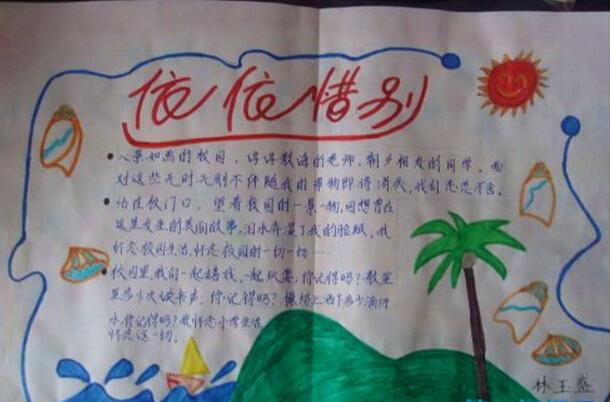 依依惜别
• 人景如画的校园，谆谆教诲的老师，朝夕相处的同学。面
对这些无时无刻不伴随我的事物即将消失，我们恋恋不舍。
• 站在校门口，望着校园的一景一物，回想曾在
这里发生的英雄故事，泪水弄湿了我的脸颊，我
怀念校园生活，怀念校园的一切一切……
• 校园里我们一起嬉戏，一起玩耍，你记得吗？教室
里多少次读书声，你记得吗？操场上洒下多少滴汗
水你记得吗？我怀念小学生活
怀念这一切。
林玉盛